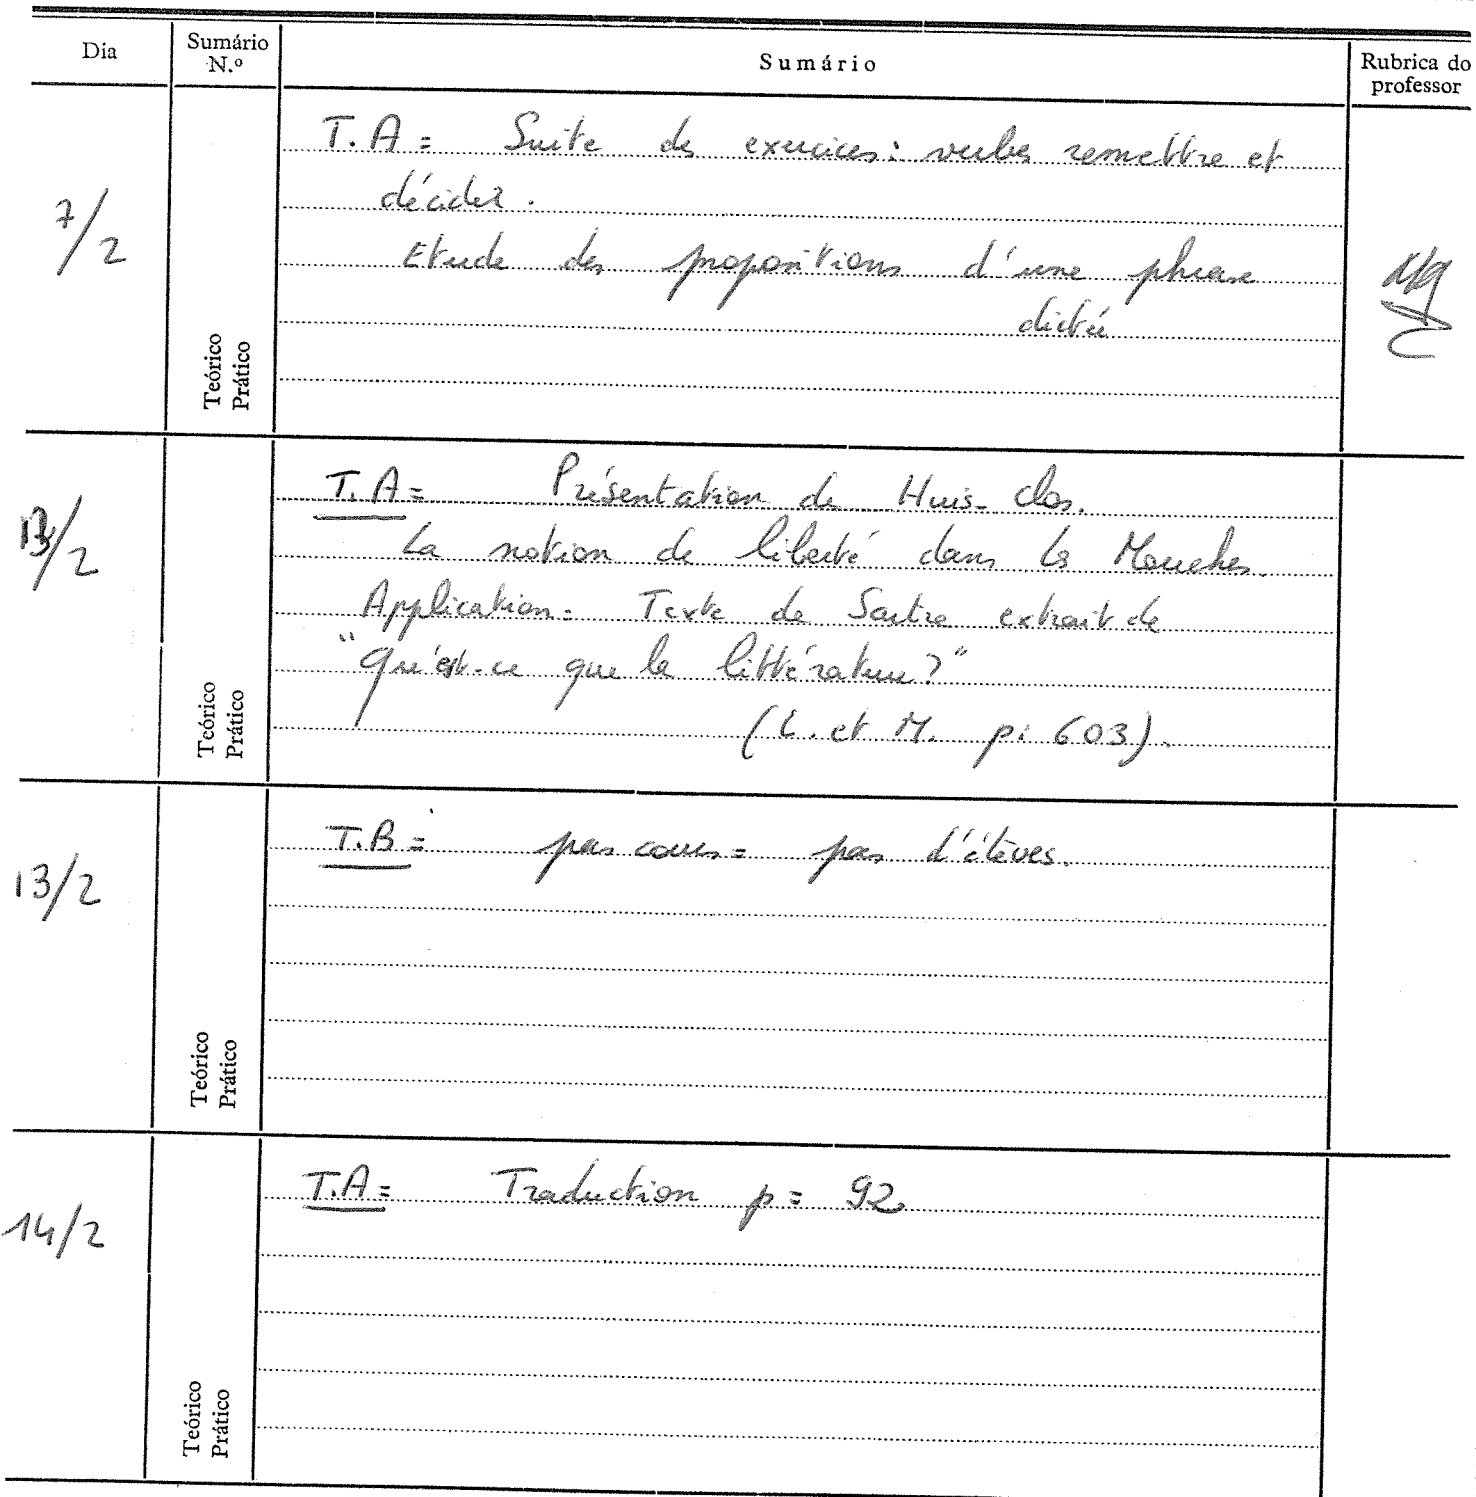 Dia
Sumário N.º
Sumário
Rubrica do professor
7/2
Teórico
Prático
T.A = Suite des exercices : verbes remettre et
décider.
Etude des propositions d'une phrase
dictée
13/2
Teórico
Prático
T.A = Présentation de Huis-clos.
La notion de liberté dans les Mouches.
Application = Texte de Sartre extrait de
"Qu'est-ce que la littérature ?"
(L. et M. p: 603).
13/2
Teórico
Prático
T.B = pas cours = pas d'élèves.
14/2
Teórico
Prático
T.A = Traduction p = 92